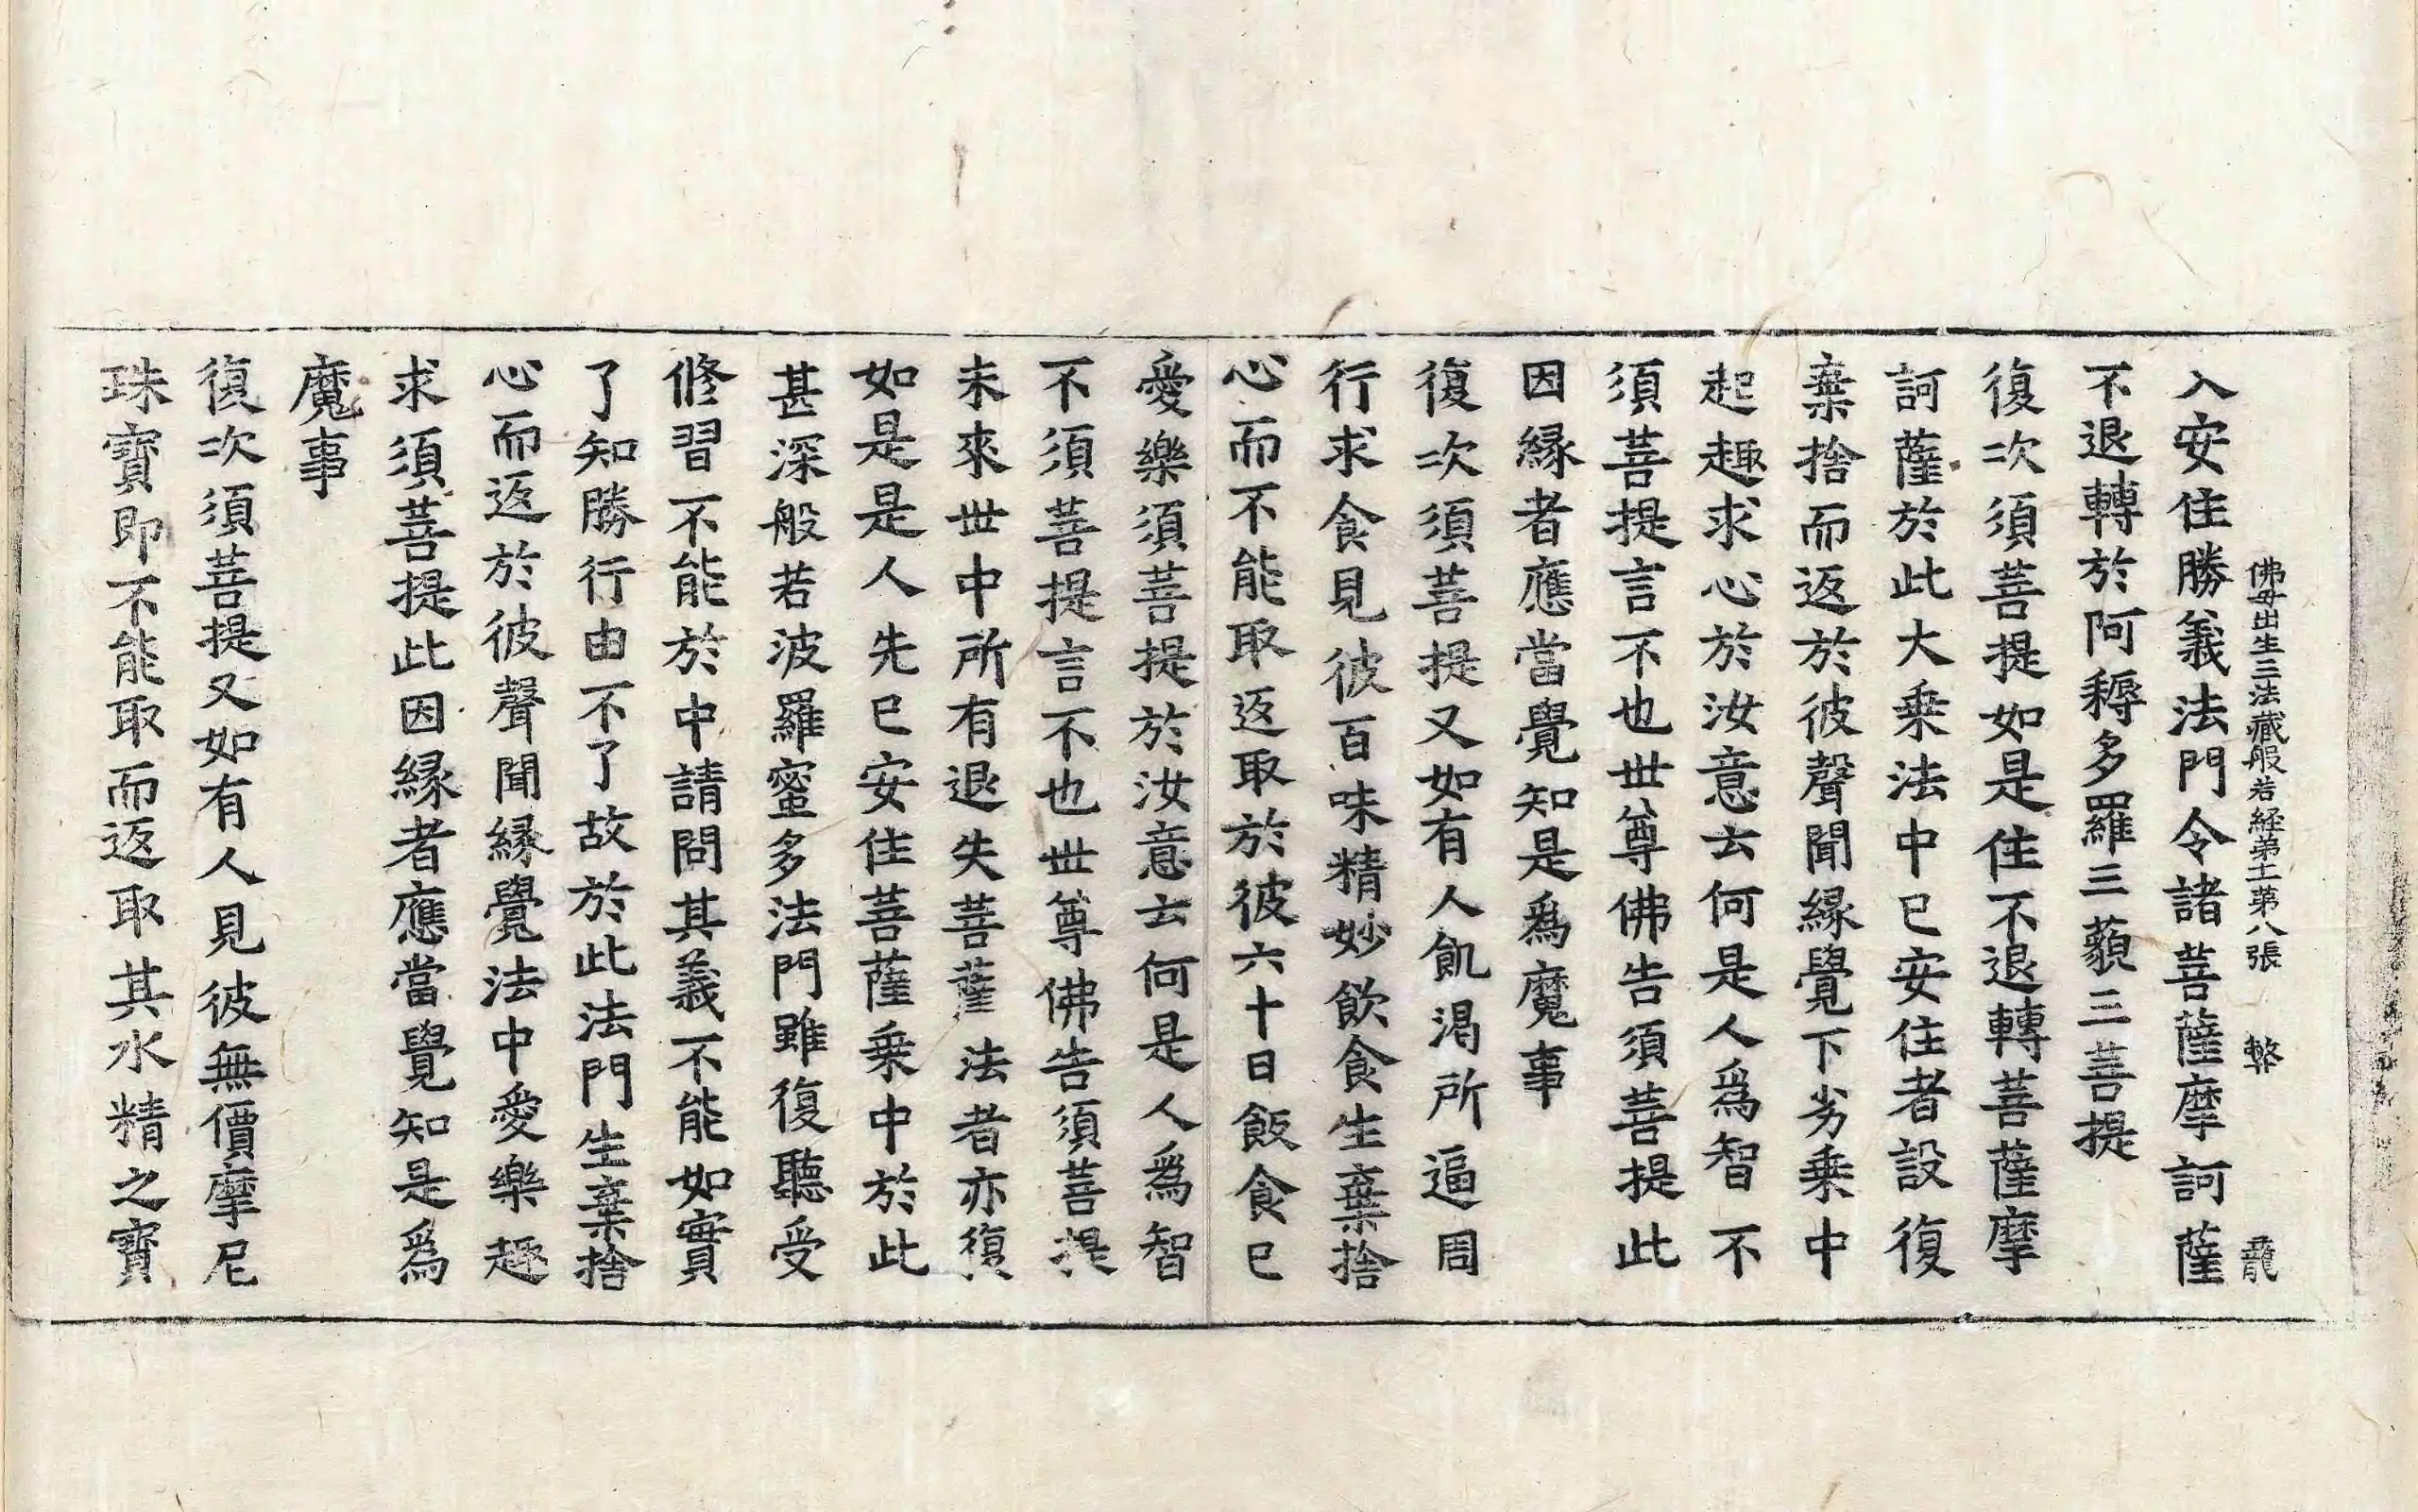 佛母出生三法藏般若經第十一第八張 𡘾 龍
入安住勝義法門令諸菩薩摩訶薩
不退轉於阿耨多羅三藐三菩提
復次須菩提如是住不退轉菩薩摩
訶薩於此大乗法中已安住者設復
棄捨而返於彼聲聞緣覺下劣乗中
起趣求心於汝意云何是人爲智不
須菩提言不也世尊佛告須菩提此
因緣者應當覺知是爲魔事
復次須菩提又如有人飢渴所逼周
行求食見彼百味精妙飲食生棄捨
心而不能取返取於彼六十日飯食已
愛樂須菩提於汝意云何是人爲智
不須菩提言不也世尊佛告須菩提
未來世中所有退失菩薩法者亦復
如是是人先已安住菩薩乗中於此
甚深般若波羅蜜多法門雖復聽受
修習不能於中請問其義不能如實
了知勝行由不了故於此法門生棄捨
心而返於彼聲聞緣覺法中愛樂趣
求須菩提此因緣者應當覺知是爲
魔事
復次須菩提又如有人見彼無價摩尼
珠寶即不能取而返取其水精之寶